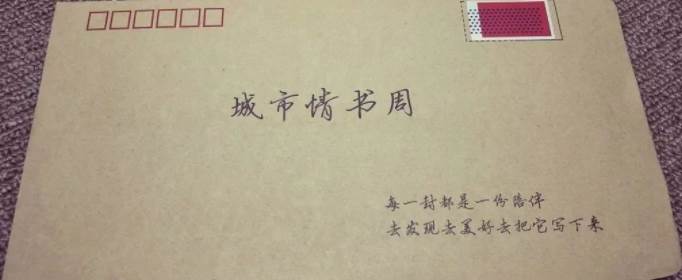 城市情书周
每一封都是一份陪伴
去发现去美好去把它写下来